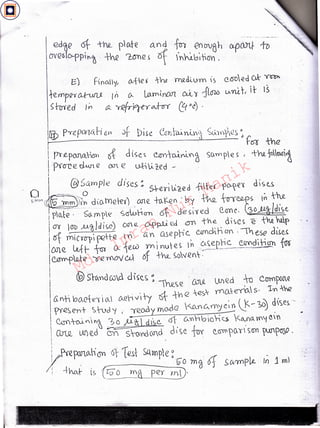 edge of the plate and for enough apart to
overlapping the zones of inhibition.
E) Finally, after the medium is cooled at room
temperature in a laminar air flow unit, it is
stored in a refrigerator (4°c).
Preparation of Disc Containing Samples:
For the
preparation of discs containing samples, the following
procedure are utilized -
@ Sample discs: Sterilized filter paper discs
(5 mm) in diameter) are taken by the forceps in the
plate. Sample solution of desired conc. (30 µg/disc
or 100 µg/disc) are applied on the discs & the help
of micropipette in an aseptic condition. These discs
are left for a few minutes in aseptic condition for
complete removal of the solvent.
ⓑ Standard discs: These are used to compare
antibacterial activity of the test materials. In the
present study, readymade Kanamycin (K-30) discs
containing 30 µg/disc of antibiotics Kanamycin
are used on standard disc for comparison purpose.
Preparation of Test Sample:
50 mg of sample in 1 ml
that is (50 mg per ml).